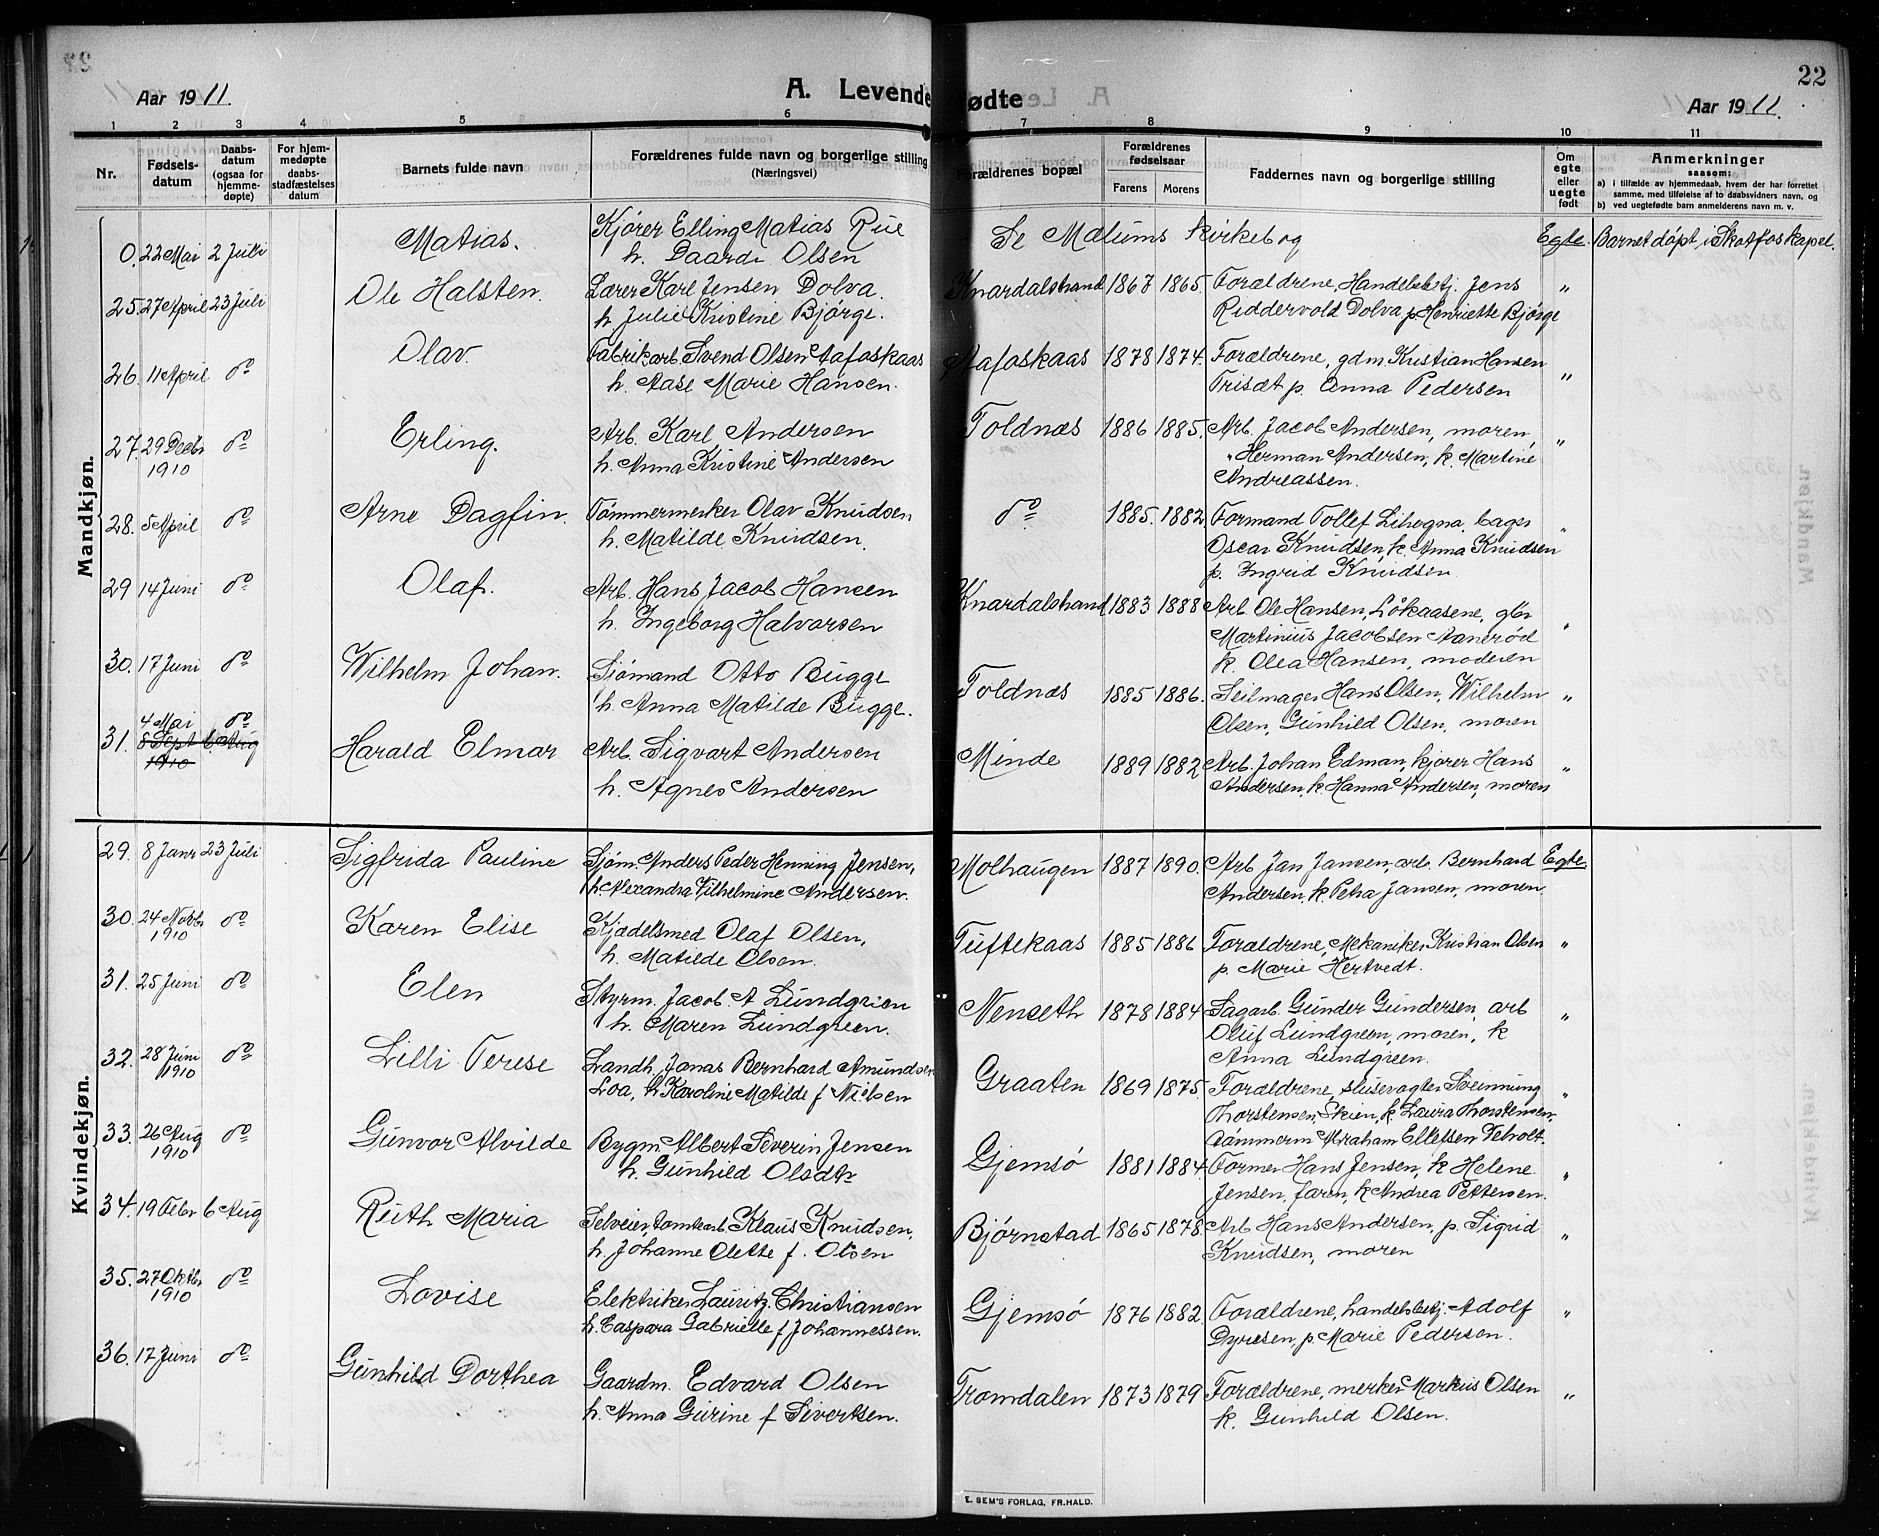 22
Aar 1911. A. Levendefødte Aar 1911.
1 2 3 4 5 6 7 8 9 10 11
Nr.
Fødselsdatum
Daabsdatum (ogsaa for hjemmedøpte)
For hjemmedøpte daabsstadfæstelses datum
Barnets fulde navn
Forældrenes fulde navn og borgerlige stilling (Næringsvei)
Forældrenes bopæl
Forældrenes fødselsaar
Farens Morens
Faddernes navn og borgerlige stilling
Om egte eller uegte født
Anmerkninger
saasom:
a) i tilfælde av hjemmedaab, hvem der har forrettet samme, med tilføielse af to daabsvidners navn, og
b) ved uegtefødte barn anmelderens navn m. v.
Mandkjøn.
0. 22 Mai 2 Juli Matias. Kjører Elling Matias Rue Se Mælums kirkebog Egte. Barnet døpt i Skotfos kapel.
h. Daardi Olsen
25. 27 April 23 Juli Ole Halsten. Lærer Karl Jensen Dolva. Knardalstrand 1867 1865. Forældrene, Handelsbetj. Jens "
h. Julie Kristine Bjørge. Riddervold Dolva p. Henriette Bjørge
26. 11 April do Olav. Fabrikarb. Svend Olsen Aafoskaas Aafoskaas 1878 1874. Forældrene, gdm Kristian Hansen
h. Aase Marie Hansen. Trisæt p. Anna Pedersen "
27. 29 Decbr 1910 do Erling. Arb. Karl Andersen Toldnæs 1886 1885. Arb. Jacob Andersen, moren, "
h. Anna Kristine Andersen " Herman Andersen, k. Martine
Andreassen.
28. 5 April do Arne Dagfin. Tømmermerker Olav Knudsen do 1885. 1882 Formand Tollef Lihogna, bager "
h. Matilde Knudsen. Oscar Knudsen, k. Anna Knudsen
p. Ingrid Knudsen
29 14 Juni do Olaf. Arb. Hans Jacob Hansen Knardalstrand 1883 1888 Arb Ole Hansen, Låkaasene, gbr
h. Ingeborg Halvorsen Martinius Jacobsen Aanerød "
k. Olea Hansen, moderen
30. 17 Juni do Wilhelm Johan. Sjømand Otto Bugge Toldnæs 1885 1886. Seilmager Hans Olsen, Wilhelm "
h. Anna Matilde Bugge. Olsen, Gunhild Olsen, moren
31. 4 Mai do Harald Elmar Arb. Sigvart Andersen Minde 1889 1882 Arb. Johan Edman, kjører Hans "
8 Sept 1910 6. Aug h. Agnes Andersen Andersen, k. Hanna Andersen, moren
Kvindekjøn.
29. 8 Janr 23 Juli Sigfrida Pauline Sjøm. Anders Peder Henning Jensen, Molhaugen 1887 1890. Arb Jan Jansen, arb. Bernhard Egte
h. Alexandra Vilhelmine Andersen. Andersen, k. Petra Jansen, moren
30. 24 Novbr 1910 do Karen Elise Kjedelsmed Olaf Olsen, Tuftekaas 1885 1886 Forældrene, Mekaniker Kristian Olsen "
h. Matilde Olsen. p. Marie Hertvedt.
31. 25 Juni do Elen Styrm. Jacob. A Lundgrien Nenseth 1878 1884 Sagarb. Gunder Gundersen, arb "
h. Maren Lundgreen. Oluf Lundgreen, moren, k
Anna Lundgreen.
32. 28 Juni 1910 do Lilli Terese Landh. Jonas Bernhard Amundsen Graaten 1869 1875. Forældrene, slusevogter Sveinung "
Loa, h Karoline Matilde f Nielsen Thorstensen, Skien, k. Laura Thorstensen,
Tømmerm Abraham Ellefsen Veholt.
33. 26 Aug 1910 do Gunvor Alvilde Bygm. Albert Severin Jensen Gjemsø 1881 1884. Former Hans Jensen, k Helene "
h. Gunhild Olsdtr Jensen, faren, k Andrea Pettersen.
34. 19 Febr 6 Aug Ruth Maria Selveier, tomtearb. Klaus Knudsen, Bjørnstad 1865 1878. Arb Hans Andersen, p. Sigrid "
h. Johanne Olette f. Olsen Knudsen, moren
35. 27 Oktbr 1910 do Lovise Elektriker Lauritz Christiansen Gjemsø 1876 1882. Forældrene, handelsbetj. Adolf "
h. Caspara Gabrielle f Johannessen. Dyresen, p. Marie Pedersen.
36. 17 Juni do Gunhild Dorthea Gaardm. Edvard Olsen Tromdalen 1873 1879. Forældrene, merker Markus Olsen "
h. Anna Gurine f Sivertsen. k. Gunhild Olsen.
E. SEM'S FORLAG, FR.HALD.